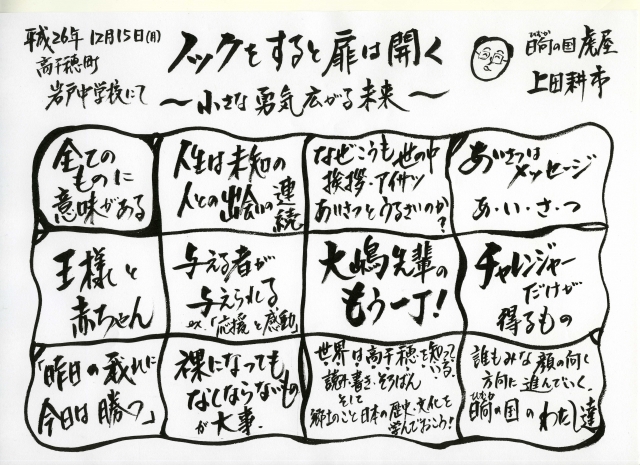 平成26年 12月15日(月)
高千穂町
岩戸中学校にて
ノックをすると扉は開く
〜小さな勇気広がる未来〜
ひむか
日向の国 虎屋
上田耕市
全ての
ものに
意味がある
人生は未知の
人との出会いの連続
なぜこうも世の中
挨拶・アイサツ
あいさつとうるさいのか?
あいさつは
メッセージ
あ・い・さ・つ
王様と
赤ちゃん
与える者が
与えられる
ex.「応援と感動」
大嶋先輩の
もう一丁!
チャレンジャー
だけが
得るもの
「昨日の我れに
今日は勝つ」
裸になっても
なくならないもの
が大事.
世界は高千穂を知っている.
読み・書き・そろばん
そして
郷土のこと日本の歴史・文化を
学んでおこう!
誰もみな顔の向く
方向に進んでいく.
ひむか
日向の国のわたし達